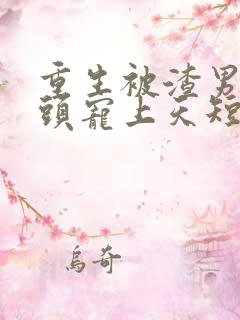 重生被渣男
頭寵上天短
烏奇